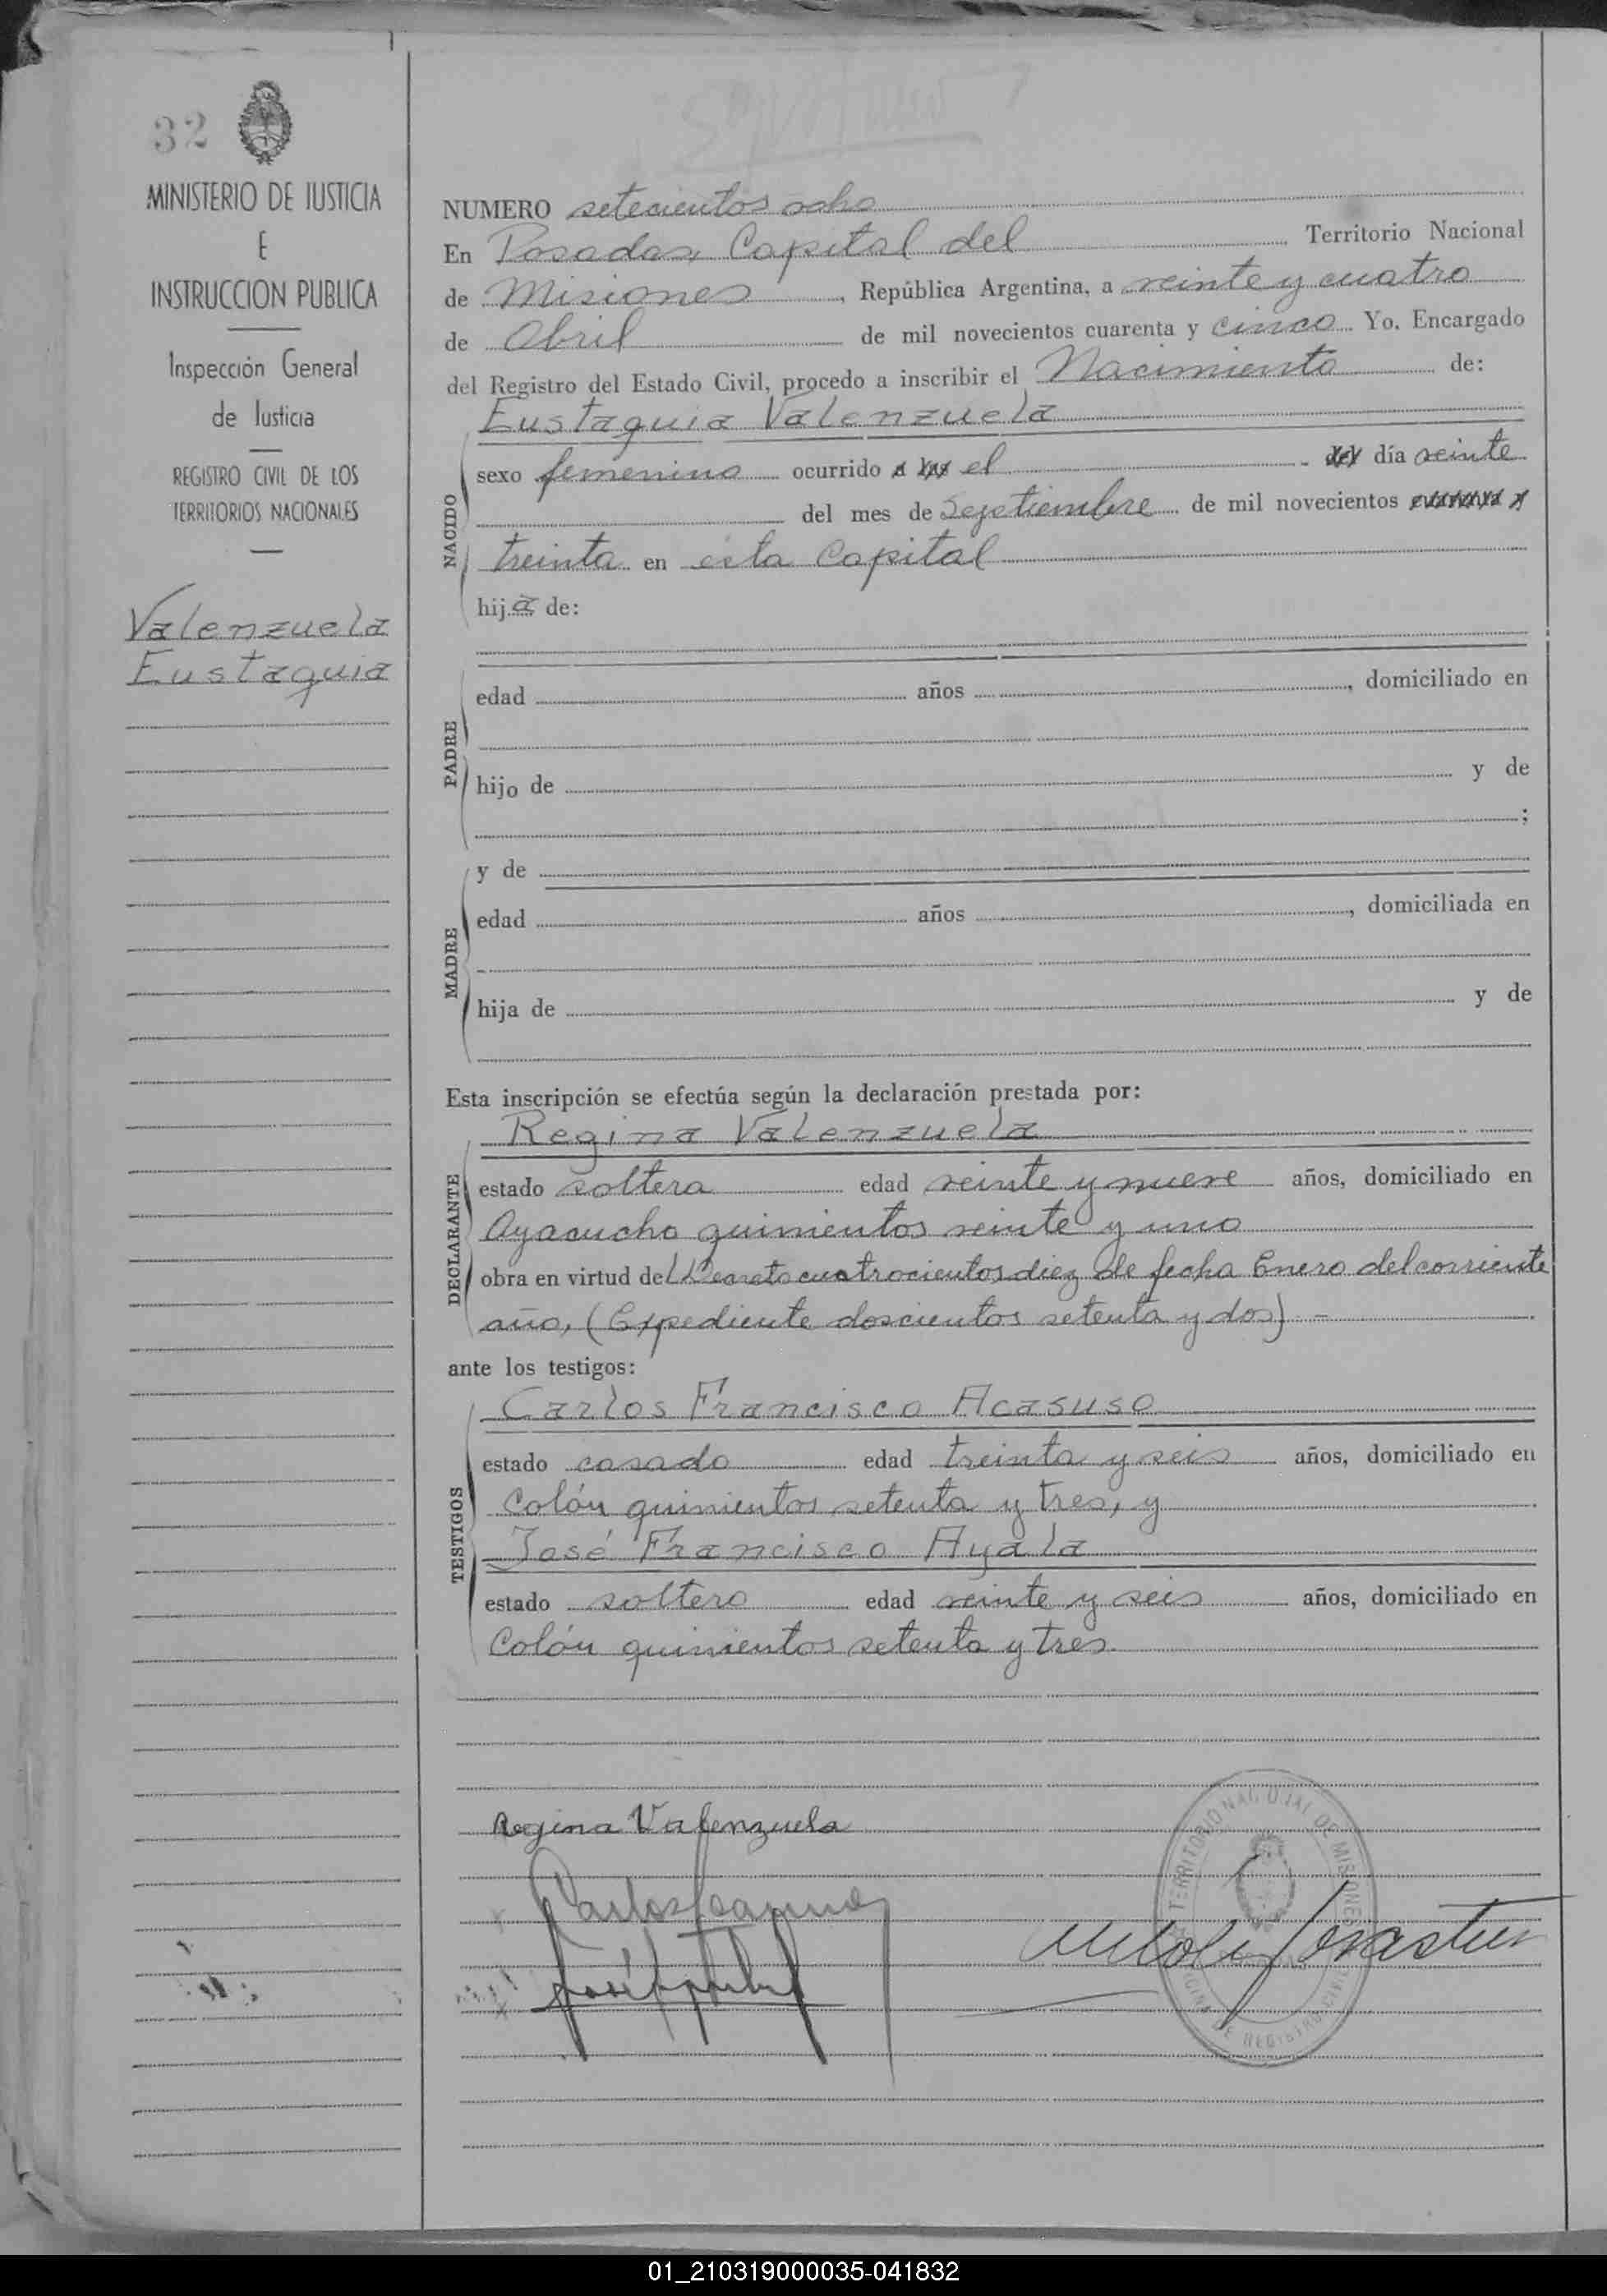 32
MINISTERIO DE JUSTICIA
E
INSTRUCCION PUBLICA
Inspección General
de Justicia
REGISTRO CIVIL DE LOS
TERRITORIOS NACIONALES
Valenzuela
Eustaquia
NUMERO setecientos ocho
En Posadas, Capital del Territorio Nacional
de Misiones, República Argentina, a veinte y cuatro
de Abril de mil novecientos cuarenta y cinco Yo, Encargado
del Registro del Estado Civil, procedo a inscribir el Nacimiento de:
Eustaquia Valenzuela
NACIDO
sexo femenino ocurrido a las el del día veinte
del mes de Septiembre de mil novecientos
treinta en esta Capital
hija de:
PADRE
edad años , domiciliado en
hijo de y de
;
MADRE
y de
edad años , domiciliada en
hija de y de
Esta inscripción se efectúa según la declaración prestada por:
Regina Valenzuela
DECLARANTE
estado soltera edad veinte y nueve años, domiciliado en
Ayacucho quinientos veinte y uno
obra en virtud del Decreto cuatrocientos diez de fecha Enero del corriente
año, (Expediente doscientos setenta y dos) –
ante los testigos:
Carlos Francisco Acasuso
TESTIGOS
estado casado edad treinta y seis años, domiciliado en
Colón quinientos setenta y tres, y
José Francisco Ayala
estado soltero edad veinte y seis años, domiciliado en
Colón quinientos setenta y tres.
Regina Valenzuela
TERRITORIO NACIONAL DE MISIONES
DE REGISTRO CIVIL
01_210319000035-041832